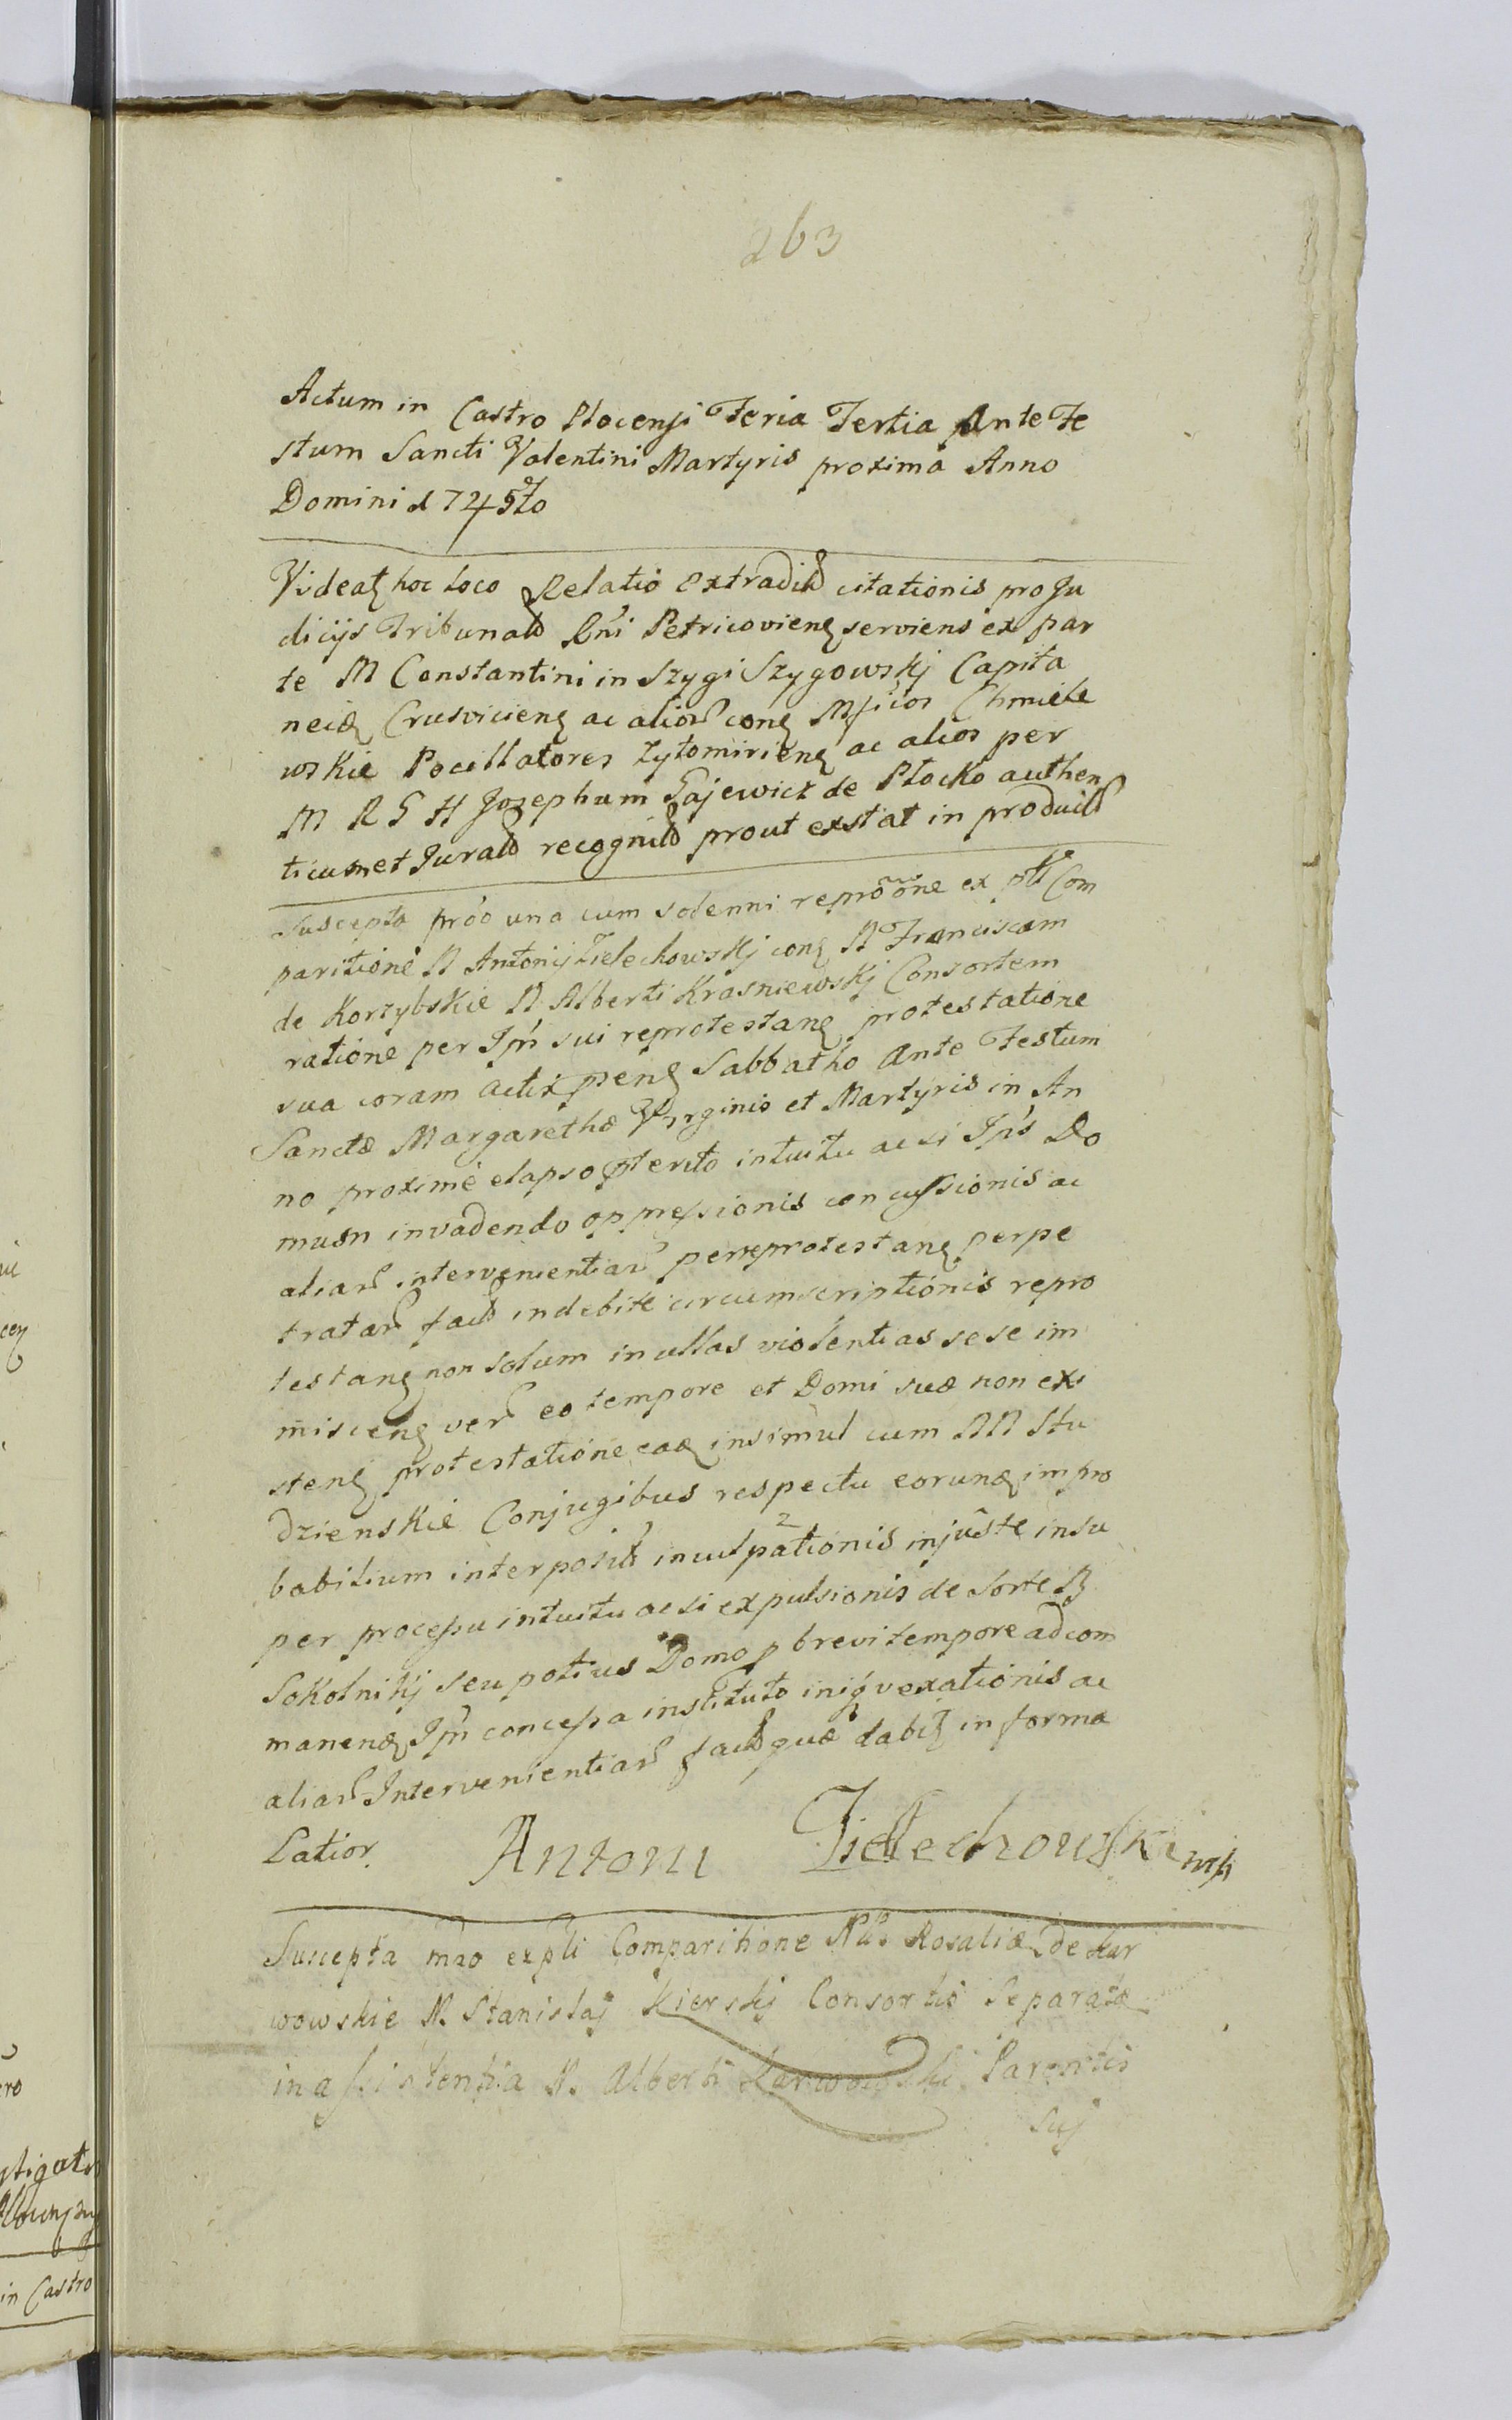 263
Actum in Castro Plocensi Feria Tertia Ante Fe
stum Sancti Valentini Martyris proxima Anno
Domini 1745to
Videat hoc loco Relatio extradit citationis pro Ju
dicijs Tribunal Rni Petricovien serviens ex par
te M Constantini in Szygi Szygowskj Capita
nei Crusvicien ac alior con Mficos Chmiele
wskie Pocillatores Zytomirien ac alios per
M R G H Josephum Gajewicz de Plocko authen
ticum et Jurat recognit prout exstat in producit
Suscepta pro una cum solenni repróóne ex pli Com
paritione N Antonij Zielechowskj con N Franciscam
de Korzybskie N Alberti Krasniewskj Consortem
ratione per Ipm sui reprotestan protestatione
sua coram actis pren Sabbatho Ante Festum
Sanctæ Margarethæ Virginis et Martyris in An
no proxime elapso pterito intuitu ac si Ips Do
mum invadendo oppressionis concussionis ac
aliar intervenientiar per reprotestan perpe
tratar fact indebite circumscriptionis repro
testan non solum in ullas violentias sese im
miscen ver eo tempore et Domi suæ non exi
sten protestatione ea insimul cum NN Stu
dzienskie Conjugibus respectu eorun impro
babilium interposit inculpationis injuste insu
per processu intuitu ac si expulsionis de Sorte N
Sokolnikj seu potius Domo p brevi tempore ad com
manen Ipm concessa instituto iniq vexationis ac
aliar Intervenientiar fact quæ dabit in forma
Latior. Antoni Zielechowski mp
Suscepta mao ex pli Comparitione Nlis Rosaliæ de Kar
wowskie N. Stanislaj Kierskj Consortis Separatæ
in assistentia N. Alberti Karwowski Parentis
suj
stigat
in Castro